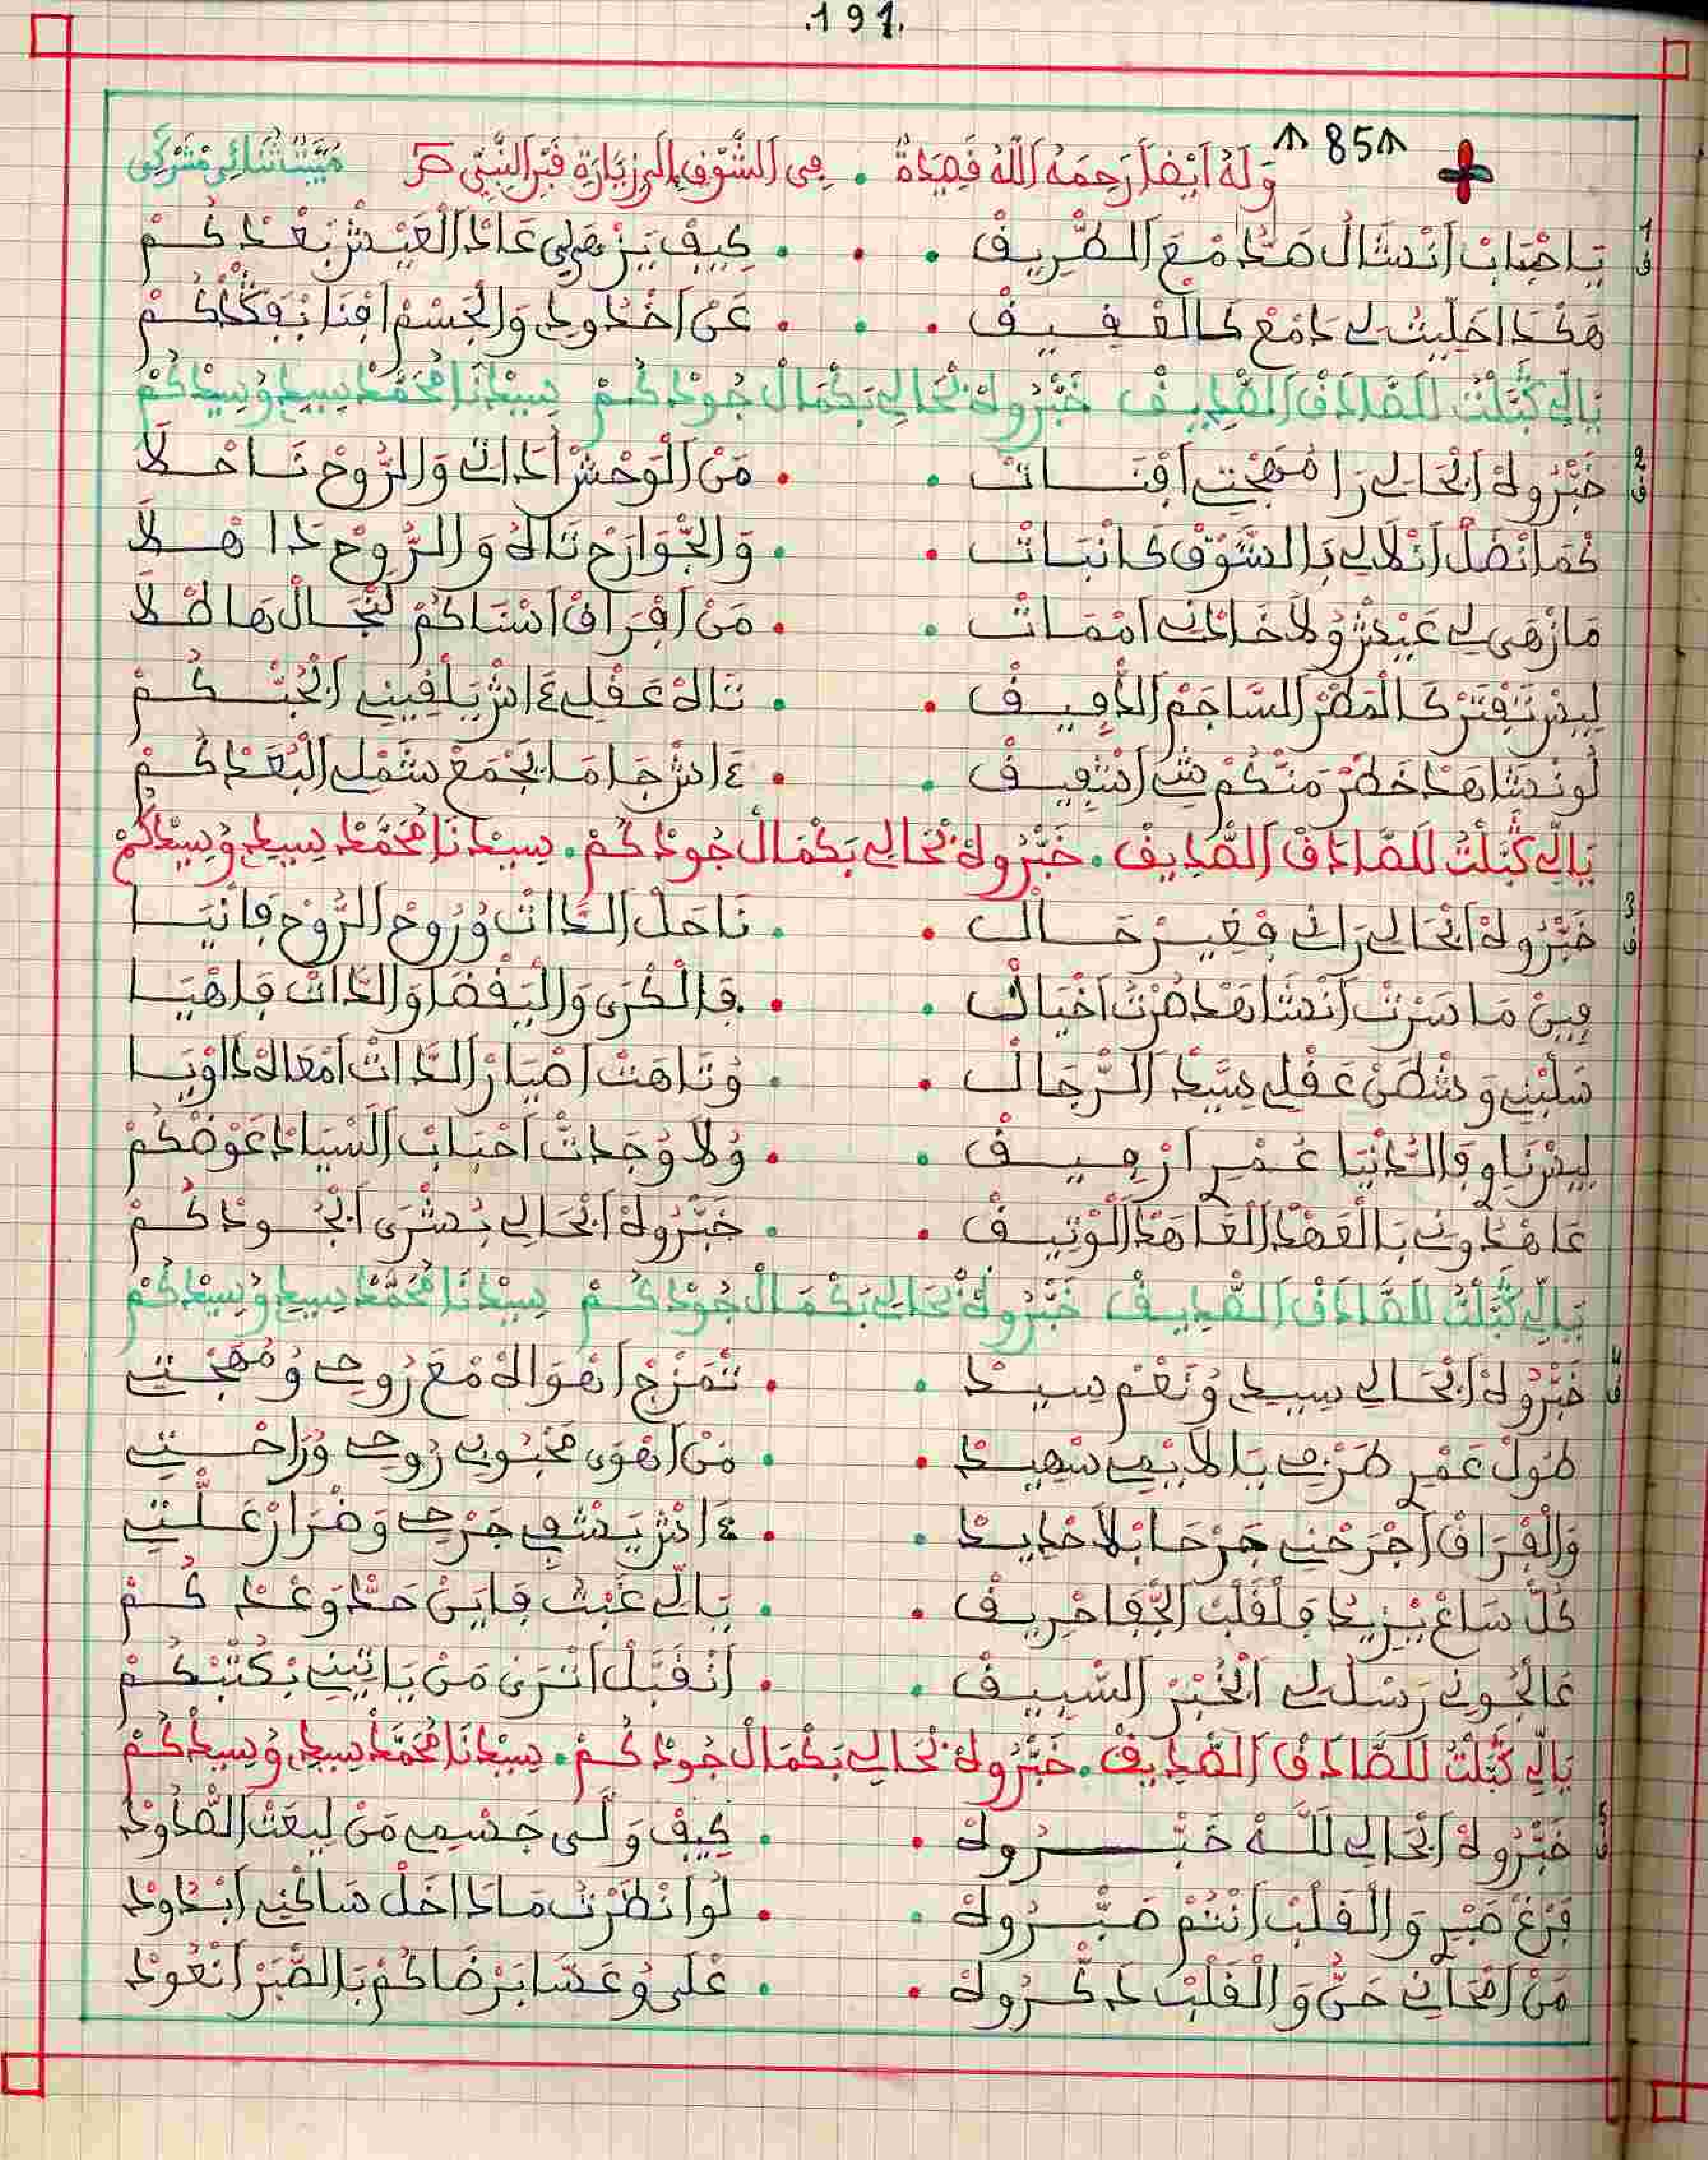 .191.
↑85↑
وَلَهُ أَيْضًا رَحِمَهُ اللَّهُ قَصِيدَةٌ . فِي الشَّوْقِ إِلَى زِيَارَةِ قَبْرِ النَّبِيّ مْبَيَّتْ ثُنَائِي مَشْرْكِي
1 يَا حْبَابْ أَنْسَالْ هَدَا مْعَ الطّْرِيقْ . . . كِيفْ يَزْهَى لِي عَادْ الْعَيْشْ بَعْدْكُمْ
هَكْدَا خَلِّيتْ لِي دَامْعْ كَالْعْقِيقْ . . . عَنْ أَخْدُودِي وَالْجَسْمْ افْنَا بْفَقْدْكُمْ
يَالِّي كَتَّبْتْ لَلصَّادَقْ الصّْدِيقْ خَبّْرُوهْ بْحَالِي بَكْمَالْ جُودْكُمْ سِيدْنَا مُحَمَّدْ سِيدِي وْسِيدْكُمْ
2 خَبّْرُوهْ ابْحَالِي رَا مُهَجْتِي افْنَاتْ . . مَنْ الْوَحْشْ أَدَاتِي وَالرُّوحْ نَاحْلَا
كْمَا نْضَلْ أَنْلَالِي بَالشَّوْقْ كَانْبَاتْ . . وَالجْوَارَحْ تَاهُ وَالرُّوحْ دَا هْلَا
مَا زْهَى لِي عَيْشْ وُلَا خَاطْرِي امْمَاتْ . . مَنْ افْرَاقْ اسْنَاكُمْ لَنْجَالْ هَاطْلَا
لِيسْ تَفْتَرْ كَالْمَطْرْ السَّاجَمْ الدّْفِيقْ . . تَاهْ عَقْلِي ءَاشْ يَلْقِينِي ابْحُبّْكُمْ
لُو نْشَاهَدْ خَطْرْ مَنْكُمْ شِي ارْشِيقْ . . ءَاشْ جَا مَا يَجْمَعْ شَمْلِي الْبُعْدْكُمْ
يَالِّي كَتَّبْتْ لَلصَّادَقْ الصّْدِيقْ . خَبّْرُوهْ بْحَالِي بَكْمَالْ جُودْكُمْ . سِيدْنَا مُحَمَّدْ سِيدِي وْسِيدْكُمْ
3 خَبّْرُوهْ ابْحَالِي رَانِي فْغِيرْ حَالْ . . نَاحَلْ الدَّاتْ وُرُوحْ الرُّوحْ فَانْيَا
فِينْ مَا سَرْتْ أَنْشَاهَدْ صُرْتْ اخْيَالْ . . فَالْكْرَى وَالْيَقْضَا وَالدَّاتْ فَاهْيَا
سَلْبْنِي وَشْطَنْ عَقْلِي سِيّدْ الرّْجَالْ . . وُتَاهَتْ اصْيَارْ الدَّاتْ امْعَاهْ دَاوْيَا
لِيسْ نَاوِي فَالدُّنْيَا عُمْرِي ارْفِيقْ . . وُلَا وُجَدْتْ احْبَابْ السْيَادْ عَوْضْكُمْ
عَاهْدُونِي بَالْعَهْدْ الْعَاهَدْ الْوْتِيقْ . . خَبّْرُوهْ ابْحَالِي بُشْرَى ابْجُودْكُمْ
يَالِّي كَتَّبْتْ لَلصَّادَقْ الصّْدِيقْ خَبّْرُوهْ بْحَالِي بَكْمَالْ جُودْكُمْ سِيدْنَا مُحَمَّدْ سِيدِي وْسِيدْكُمْ
4 خَبّْرُوهْ ابْحَالِي سِيدِي وُنَعْمْ سِيدْ . . تَمْزَجْ اهْوَاهْ مْعَ رُوحِي وُمُهَجْتِي
طُولْ عَمْرِي طَرْفِي يَا لَايْمِي سْهِيدْ . . مَنْ اهْوَى مَحْبُوبِي رُوحِي وْرَاحْتِي
وَالْفْرَاقْ اجْرَحْنِي جَرْحَا بْلَا حْدِيدْ . . ءَاشْ يَشْفِي جَرْحِي وَضْرَارْ عَلّْتِي
كُلّْ سَاعْ يْزِيدْ فَلْقَلْبْ الجْفَا حْرِيقْ . . يَالِّي غَبْتْ فَايَنْ حَدّْ وَعْدْكُمْ
عَالْجُونِي رَسْلُ لِي الْخْبَرْ السّْبِيقْ . . أَنْقَبَّلْ انْتْرَى مَنْ يَاتِينِي بْكَتْبْكُمْ
يَالِّي كَتَّبْتْ لَلصَّادَقْ الصّْدِيقْ . خَبّْرُوهْ بْحَالِي بَكْمَالْ جُودْكُمْ . سِيدْنَا مُحَمَّدْ سِيدِي وْسِيدْكُمْ
5 خَبّْرُوهْ ابْحَالِي لَلَّهْ خَبّْرُوهْ . . كِيفْ وَلَّى جَسْمِي مَنْ لِيعَتْ الصّْدُودْ
فْرَغْ صَبْرِي وَالْقَلْبْ انْتُمْ صَبّْرُوهْ . . لُو انْظَرْتُ مَا دَاخَلْ سَاكْنِي ابْدُودْ
مَنْ امْحَانِي حَنّْ وَالْقَلْبْ دَكّْرُوهْ . . عْلَى وُعَسَا بَرْضَاكُمْ بَالصّْبَرْ انْعُودْ